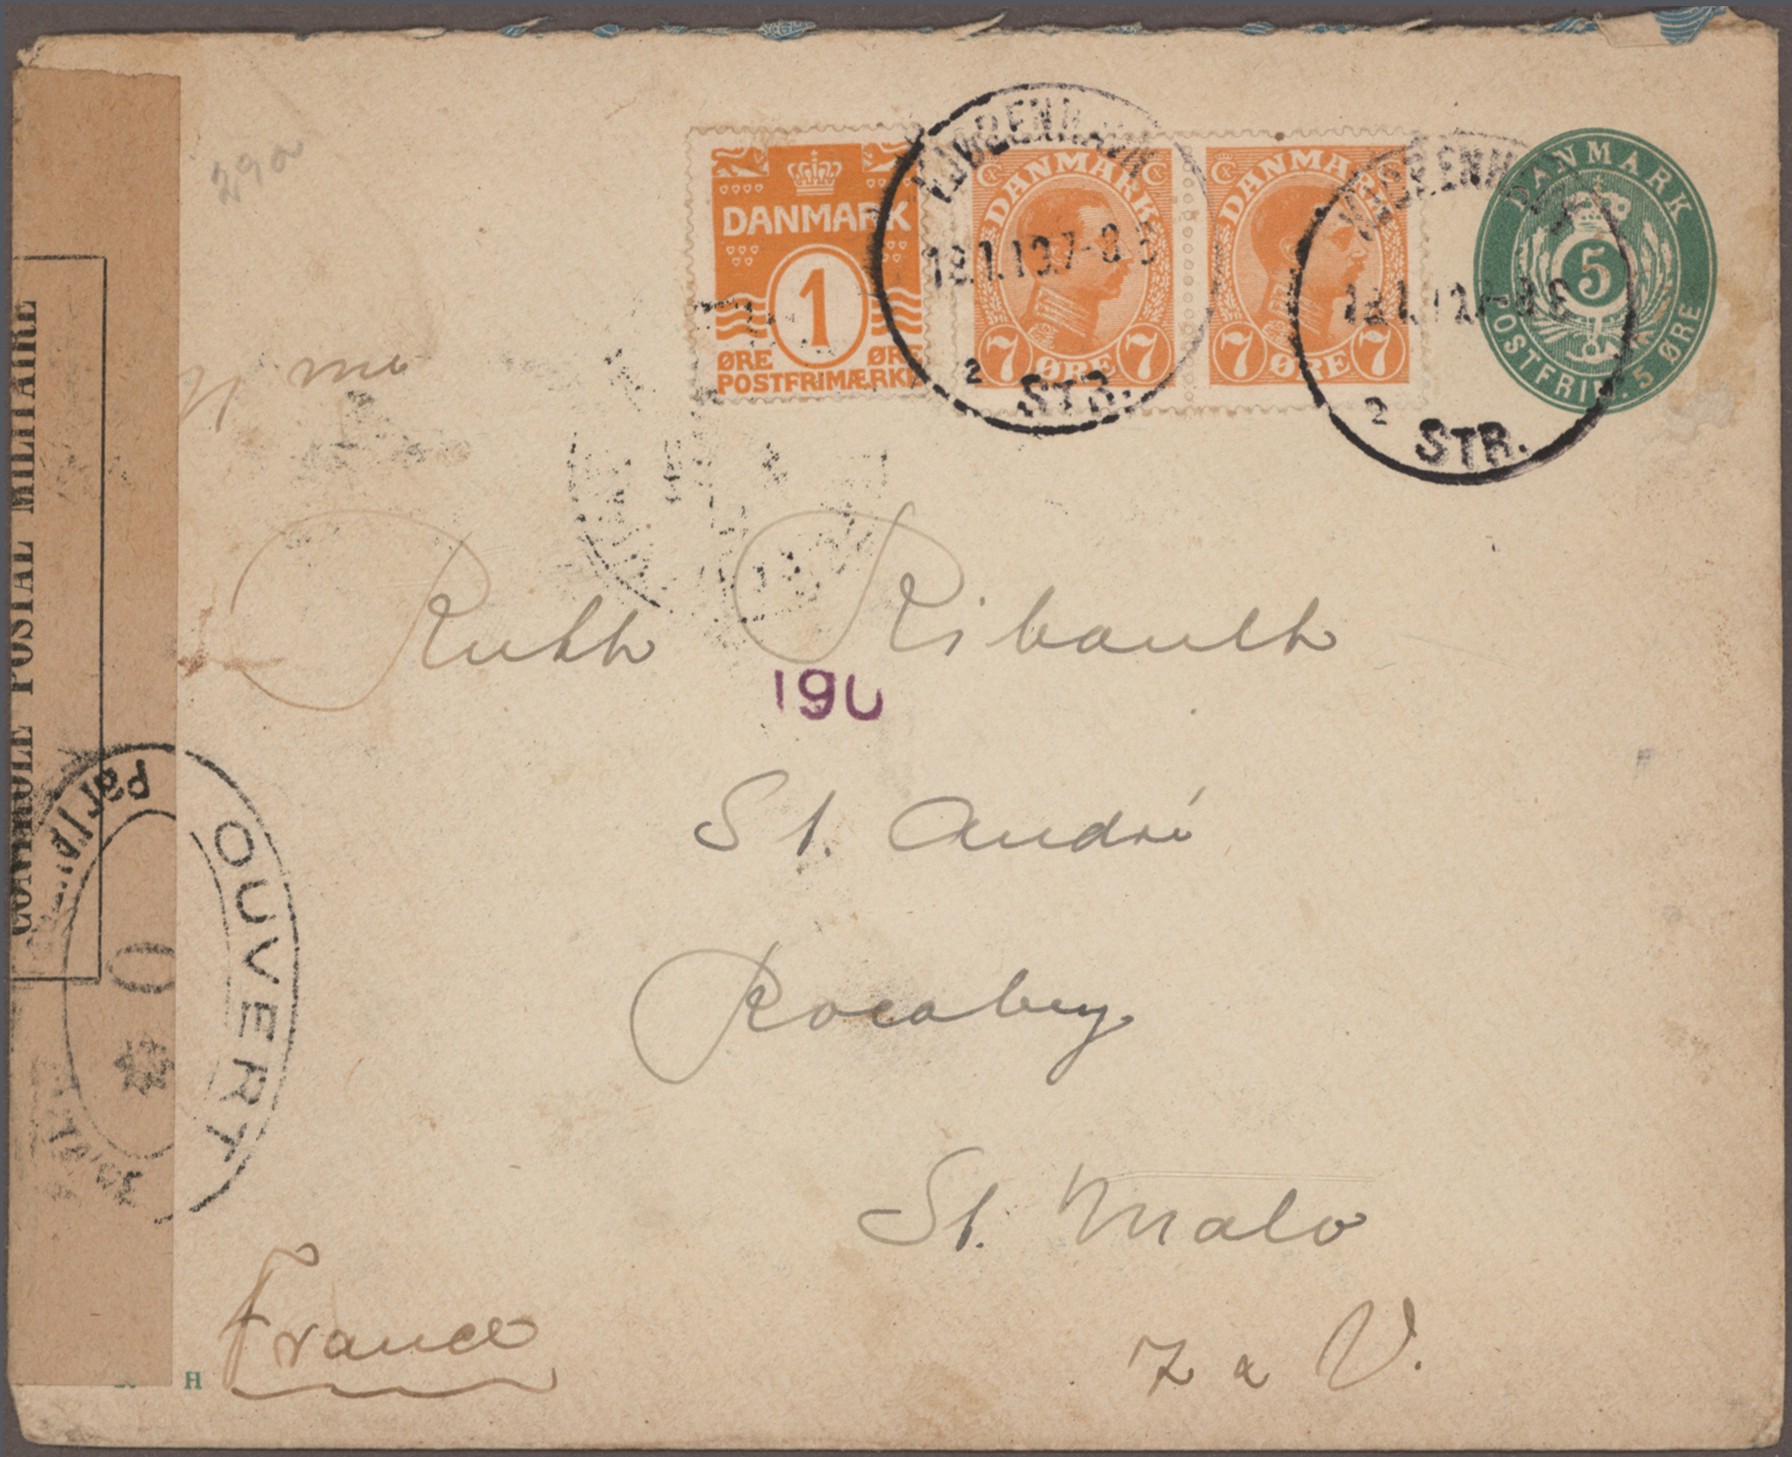 290
DANMARK
1
ØRE ØRE
POSTFRIMÆRKE
DANMARK
7 ØRE 7
DANMARK
7 ØRE 7
KJØBENHAVN
18.1.19.7-8 E
2 STR.
KJØBENH
2 STR.
DANMARK
5
POSTFRIM. 5 ØRE
CONTROLE POSTAL MILITAIRE
me
Ruth Ribault
190
St. André
Rocabey
St. Malo
France
I & V.
Par l'A
OUVERT
H